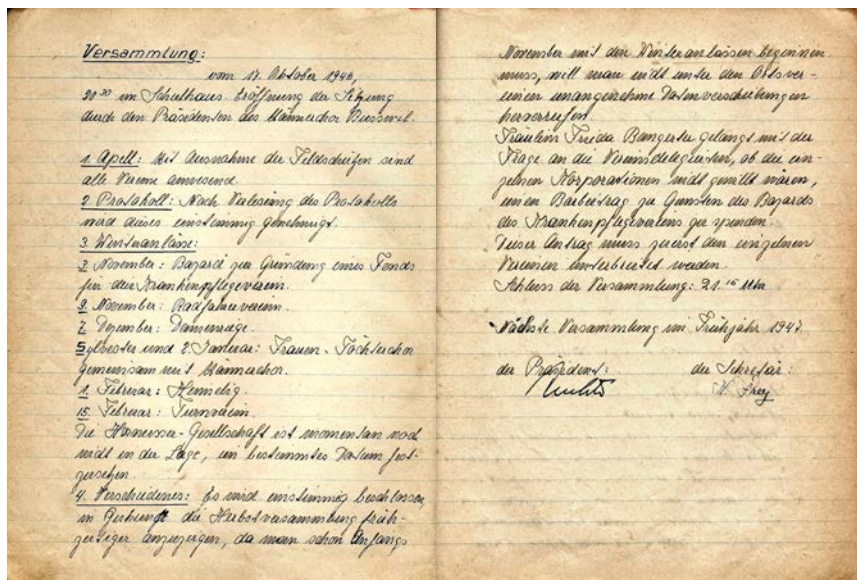 Versammlung:
vom 17. Oktober 1946,
20³⁰ im Schulhaus. Eröffnung der Sitzung
durch den Präsidenten des Männerchor Busswil.
1. Apell: Mit Ausnahme der Feldschützen sind
alle Vereine anwesend.
2. Protokoll: Nach Verlesung des Protokolls
wird dieses einstimmig genehmigt.
3. Winteranlässe:
2. November: Bazard zur Gründung eines Fonds
für den Krankenpflegeverein.
9. November: Radfahrerverein.
7. Dezember: Damenriege.
Sylvester und 2. Januar: Frauen- Töchterchor
gemeinsam mit Männerchor.
1. Februar: Heimelig.
15. Februar: Turnverein.
Die Hornusser-Gesellschaft ist momentan noch
nicht in der Lage, ein bestimmtes Datum fest-
zusetzen.
4. Verschiedenes: Es wird einstimmig beschlossen,
in Zukunft die Herbstversammlung früh-
zeitiger anzuzeigen, da man schon Anfangs
November mit den Winteranlässen beginnen
muss, will man nicht unter den Ortsver-
einen unangenehme Datenverschiebungen
hervorrufen.
Fräulein Frieda Bangerter gelangt mit der
Frage an die Vereinsdelegierten, ob die ein-
zelnen Korporationen nicht gewillt wären,
einen Barbeitrag zu Gunsten des Bazards
des Krankenpflegevereins zu spenden.
Dieser Antrag muss zuerst den einzelnen
Vereinen unterbreitet werden.
Schluss der Versammlung: 21.¹⁵ Uhr
Nächste Versammlung im Frühjahr 1947.
der Präsident: der Sekretär:
Frey